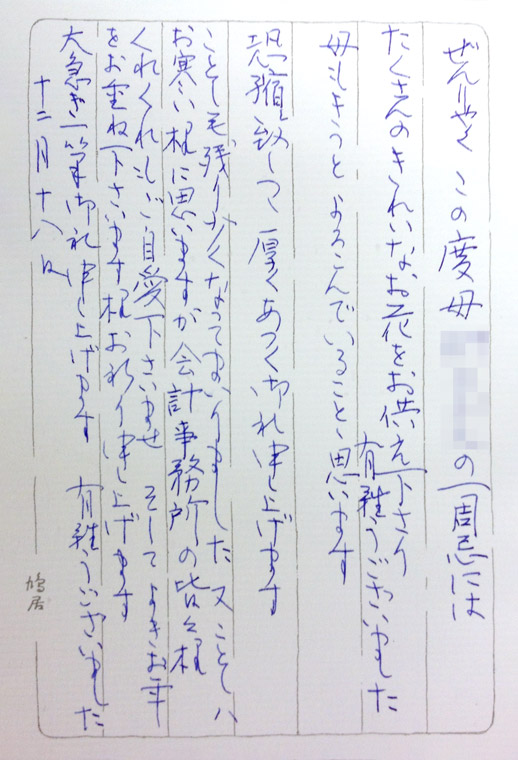 ぜんりゃく この度母
の一周忌には
たくさんのきれいなお花をお供え下さり
有難うございました
母もきっとよろこんでいること、思います
恐縮致しつつ、厚くあつく御礼申し上げます
ことしも残り少くなってまいりました 又ことしハ
お寒い様に思いますが会計事務所の皆々様
くれぐれもご自愛下さいませ そしてよきお年
をお重ね下さいます様お祈り申し上げます
大急ぎ一筆御礼申し上げます 有難うございました
十二月十八日
鳩居